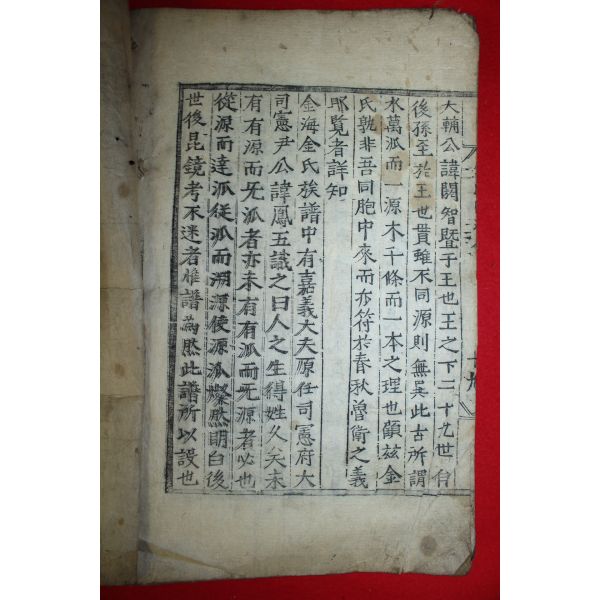 大輔公諱閼智曁于王也王之下二十九世
後孫至於王也貫雖不同源則無異此古所謂
水萬派而一源木千條而一本之理也顧玆金
氏孰非吾同胞中來而亦符於春秋魯衛之義
耶覽者詳知
金海金氏族譜中有嘉義大夫原任司憲府大
司憲尹公諱鳳五識之曰人之生得姓久矣未
有有源而无派者亦未有有派而无源者必也
從源而達派從派而溯源使源派燦然明白後
世後昆鏡考不迷者惟譜為然此譜所以設也